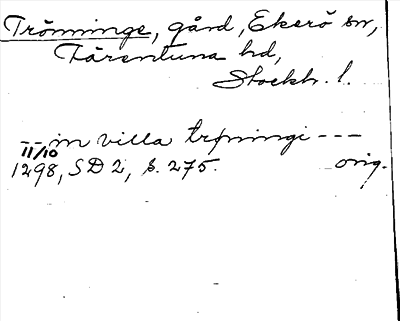 Trönninge, gård, Ekerö sn,
Färentuna hd,
Stockh. l.
--- in villa trþningi ---
11/10
1298, SD 2, s. 275. orig.